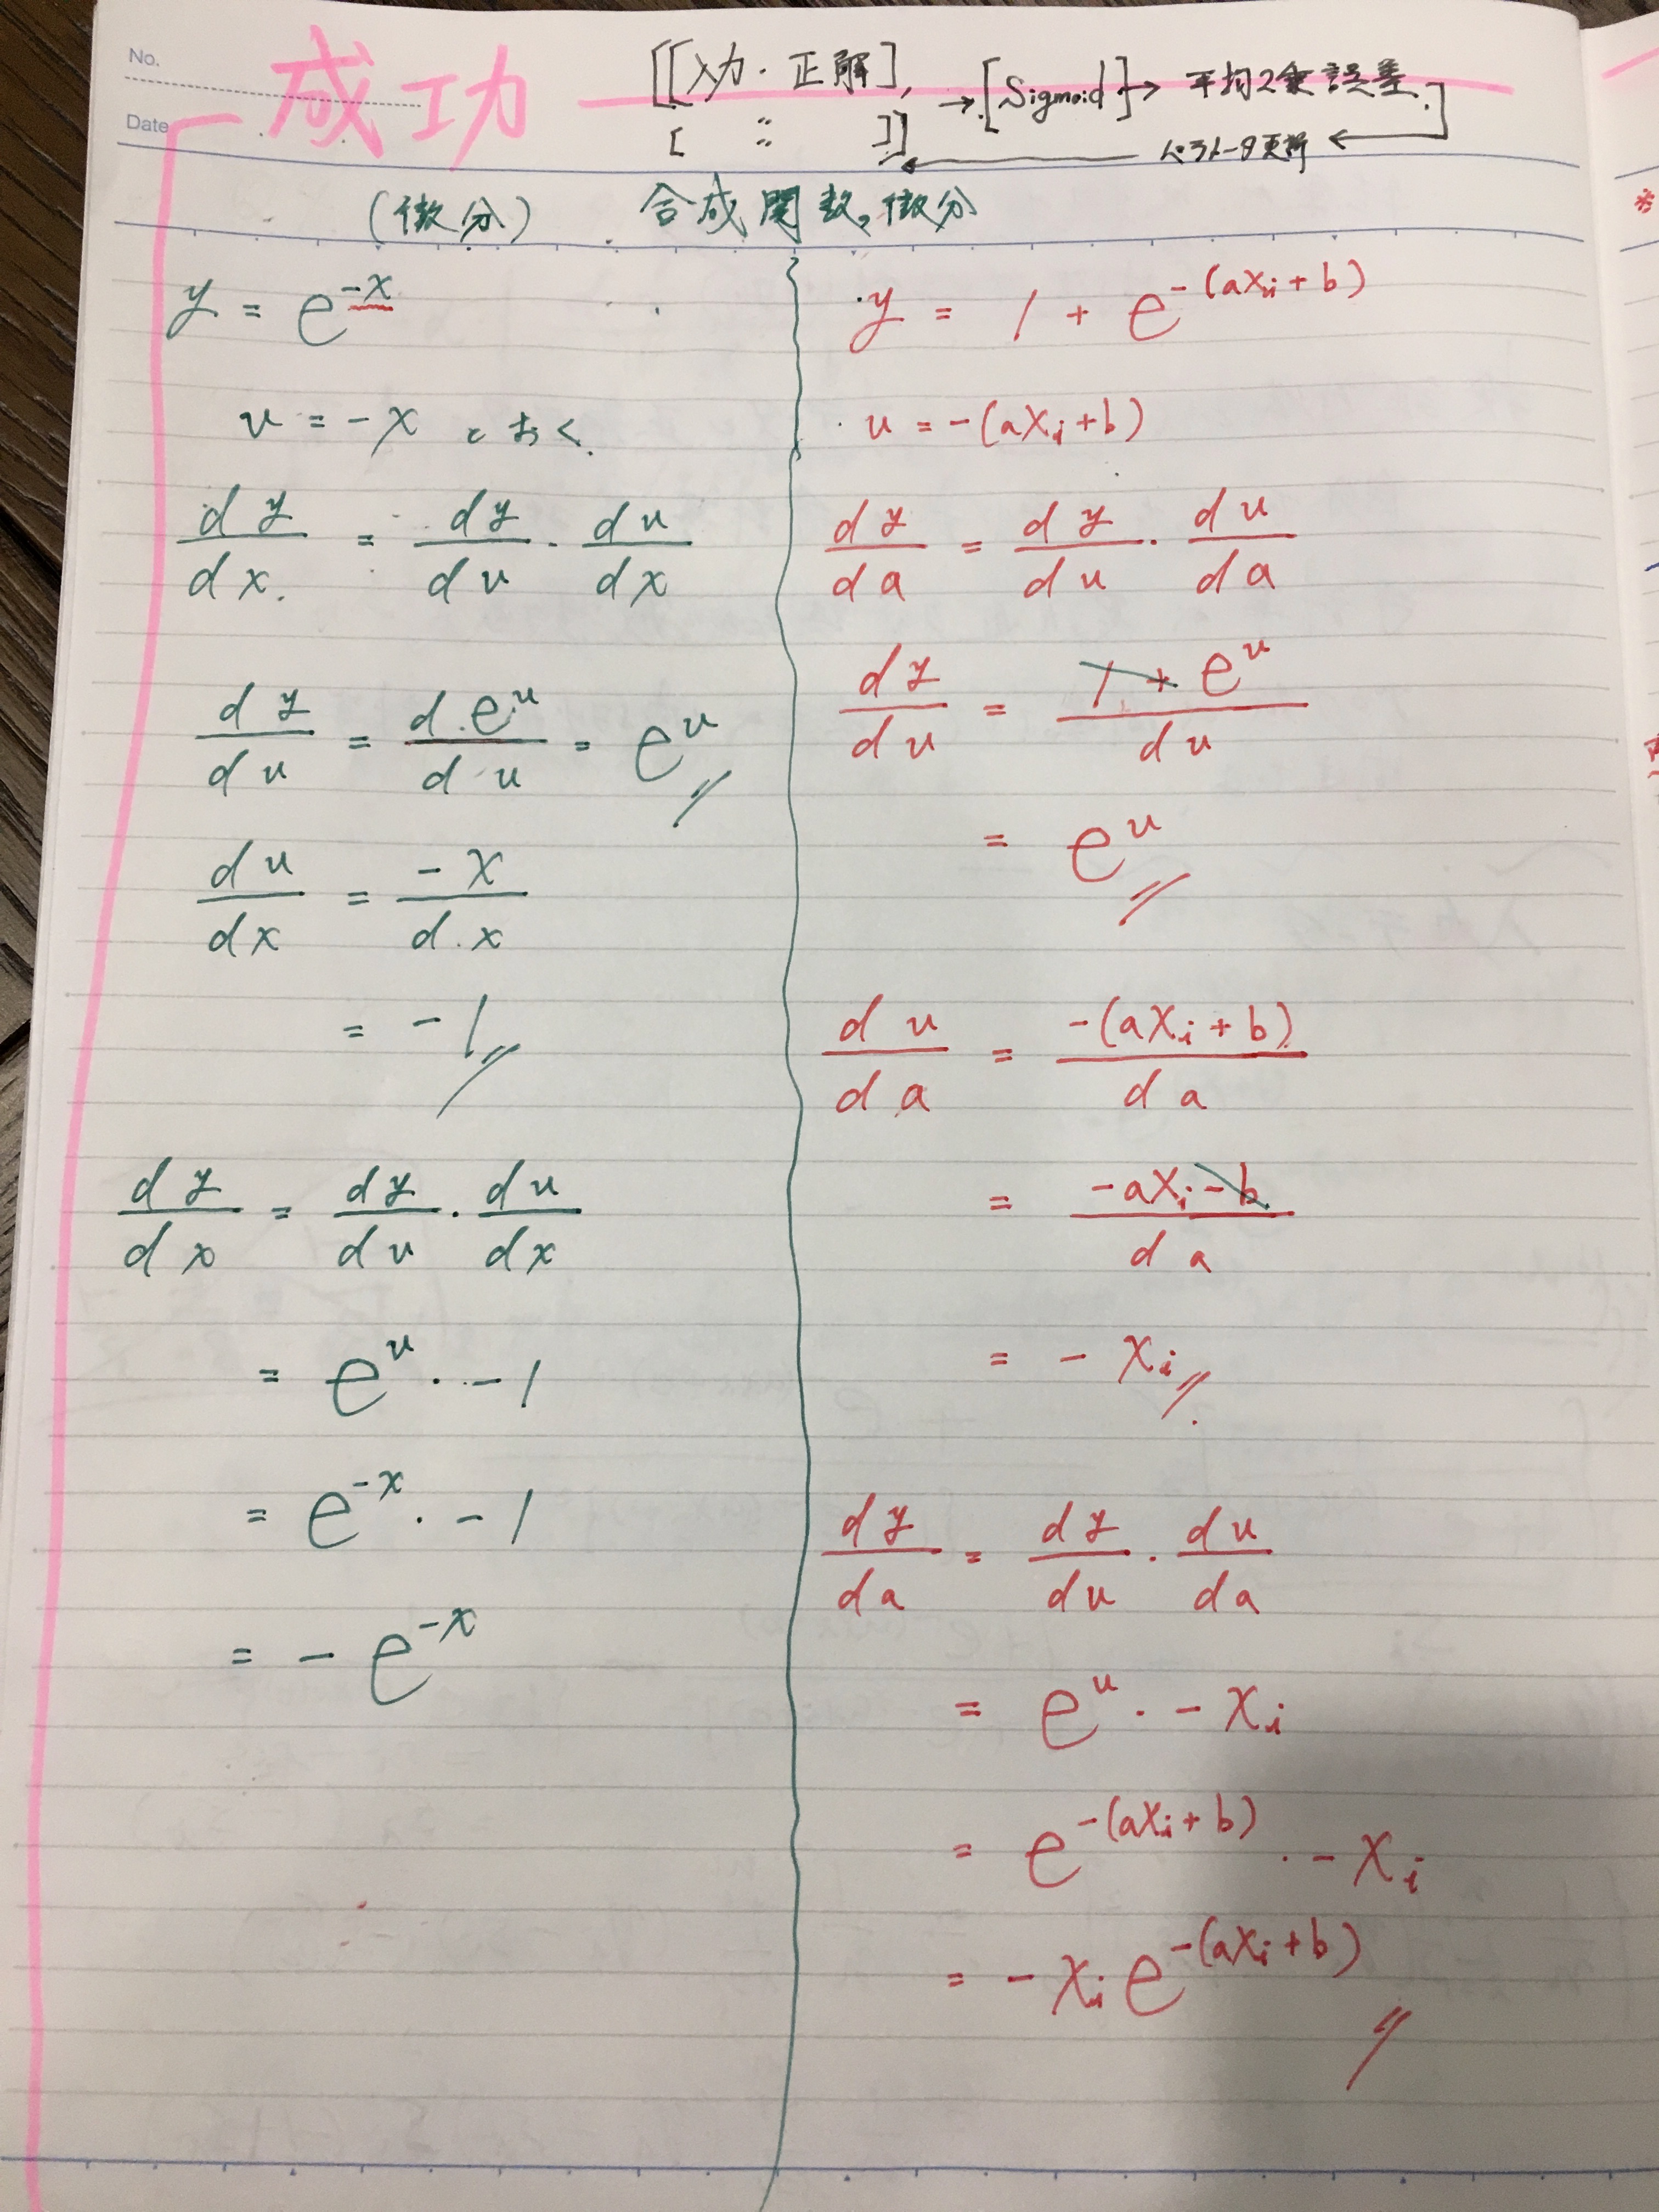 No.
Date
成功
[[入力・正解],
[ :: ]]
→[Sigmoid]→ 平均2乗誤差
パラメータ更新
(微分) 合成関数の微分
y = e^{-x}
u = -x とおく.
dy/dx. = dy/du · du/dx
dy/du = d.e^u/du = e^u
du/dx = -x/d.x
= -1
dy/dx = dy/du · du/dx
= e^u · -1
= e^{-x} · -1
= - e^{-x}
y = 1 + e^{-(ax_i+b)}
u = -(ax_i+b)
dy/da = dy/du · du/da
dy/du = 1 + e^u/du
= e^u
du/da = -(ax_i+b)/da
= -ax_i-b/da
= -x_i
dy/da = dy/du · du/da
= e^u · -x_i
= e^{-(ax_i+b)} · -x_i
= -x_i e^{-(ax_i+b)}